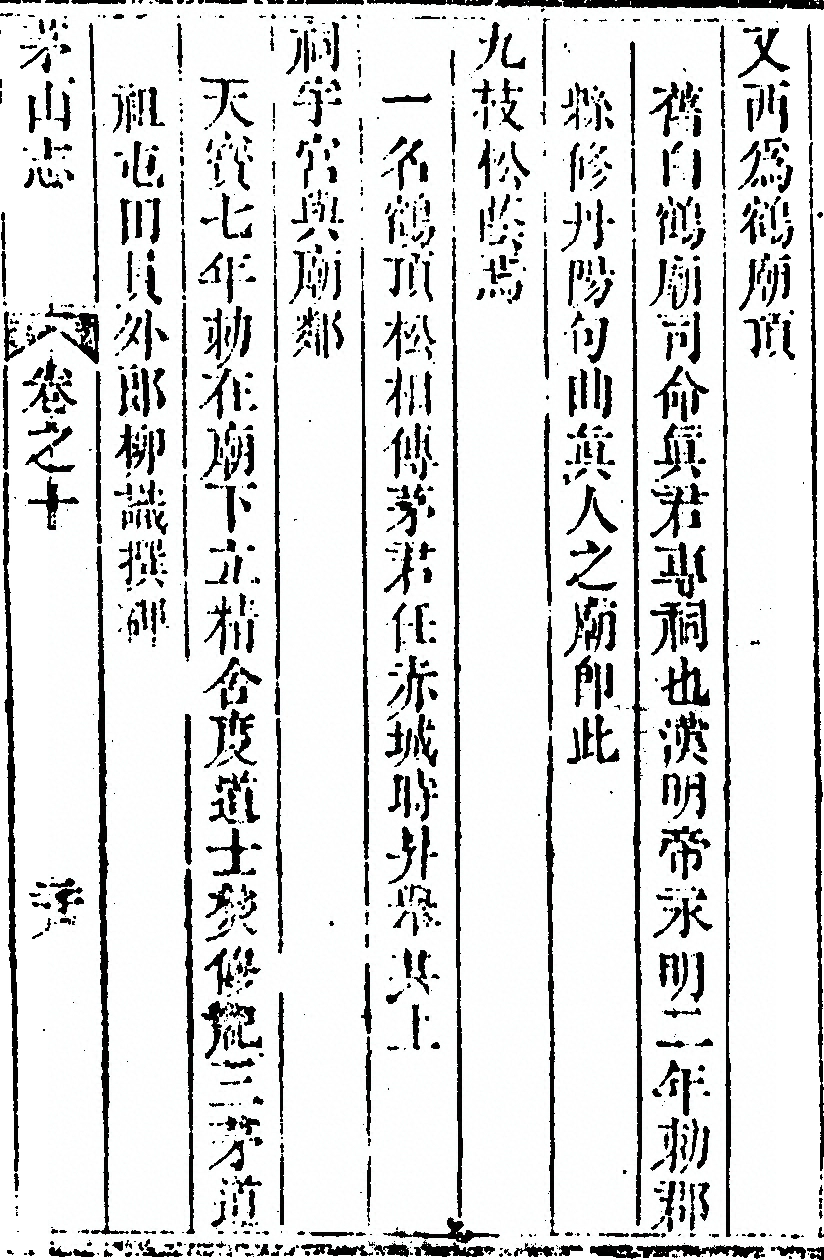 又西爲鶴廟頂
舊白鶴廟司命眞君專祠也漢明帝永明二年勅郡
縣修丹陽句曲眞人之廟即此
九枝松蔭焉
一名鶴頂松相傳茅君任赤城時昇舉其上
祠宇宮與廟鄰
天寳七年勅在廟下立精舍度道士焚修記三茅道
祖屯田員外郎柳識撰碑
茅山志 卷之十